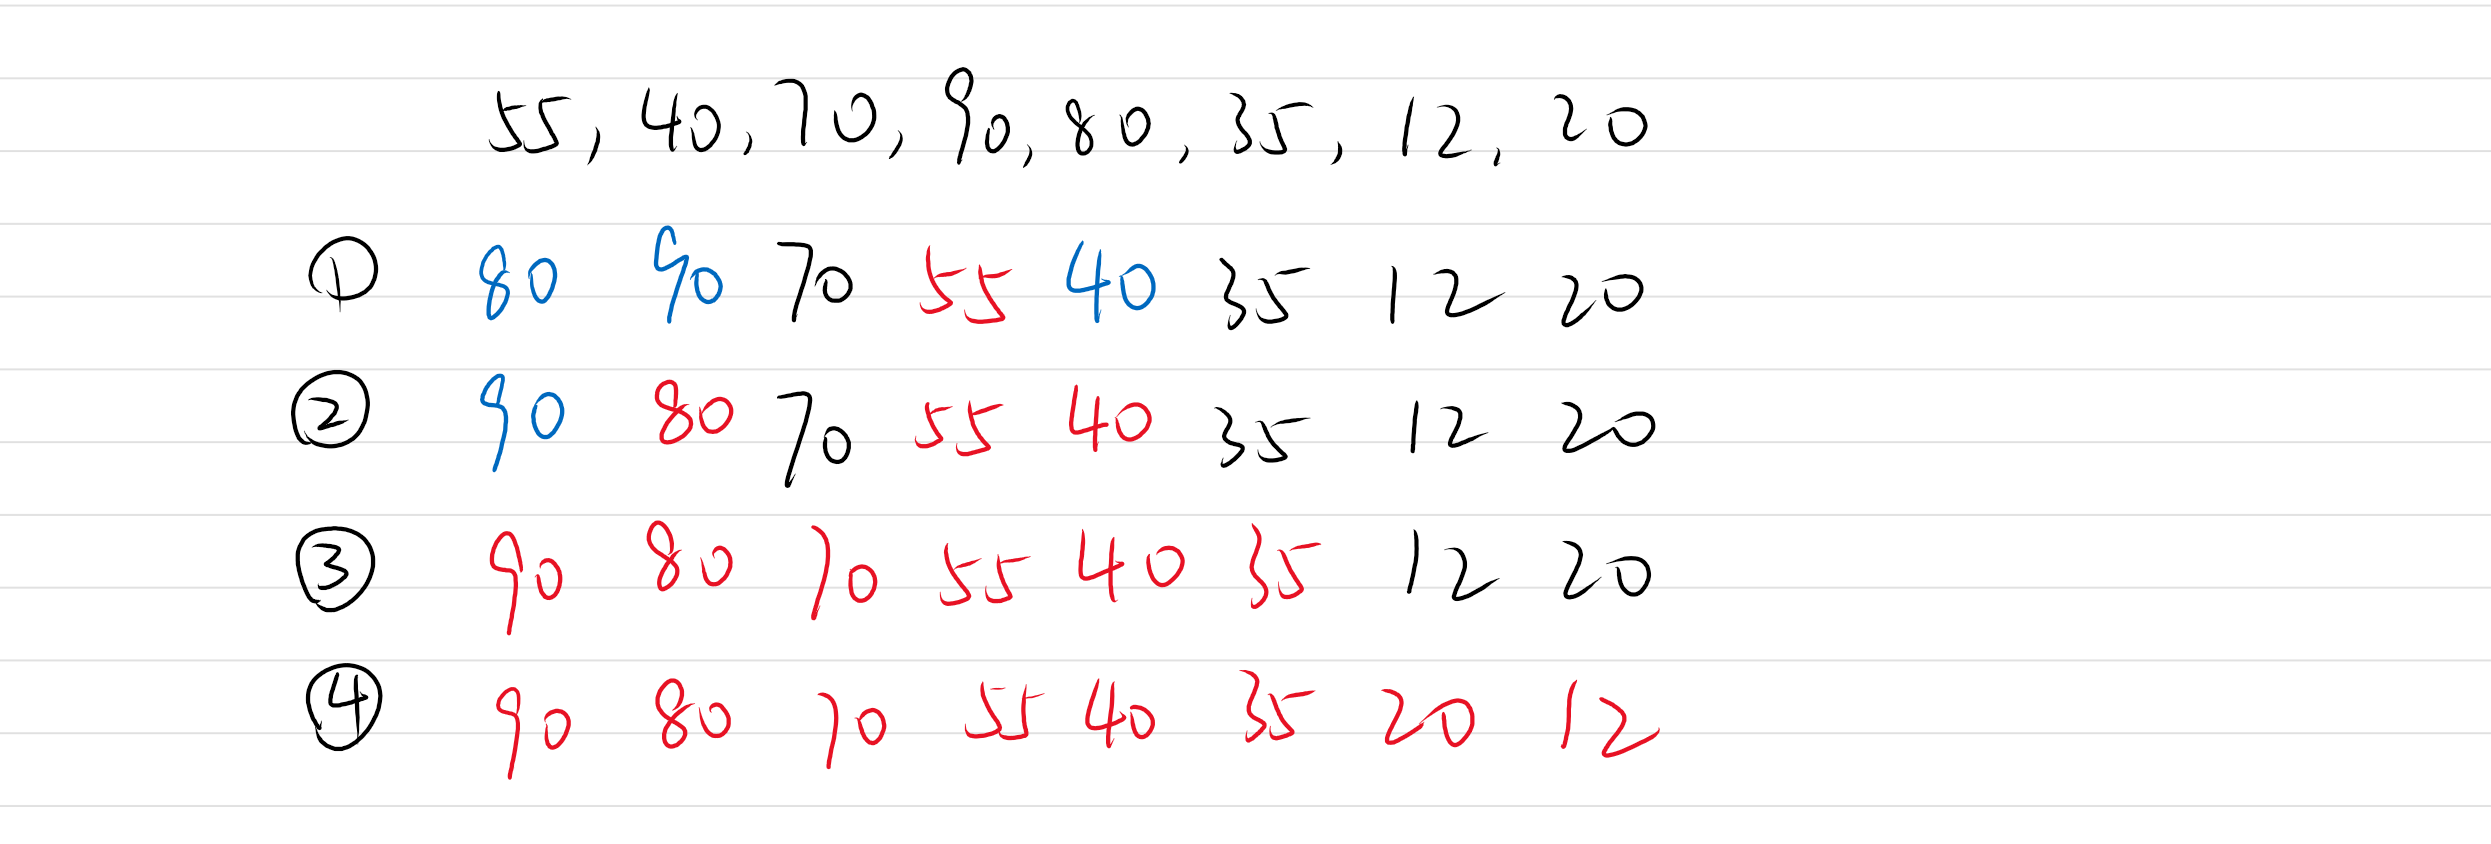 55, 40, 70, 90, 80, 35, 12, 20
① 80 90 70 55 40 35 12 20
② 90 80 70 55 40 35 12 20
③ 90 80 70 55 40 35 12 20
④ 90 80 70 55 40 35 20 12